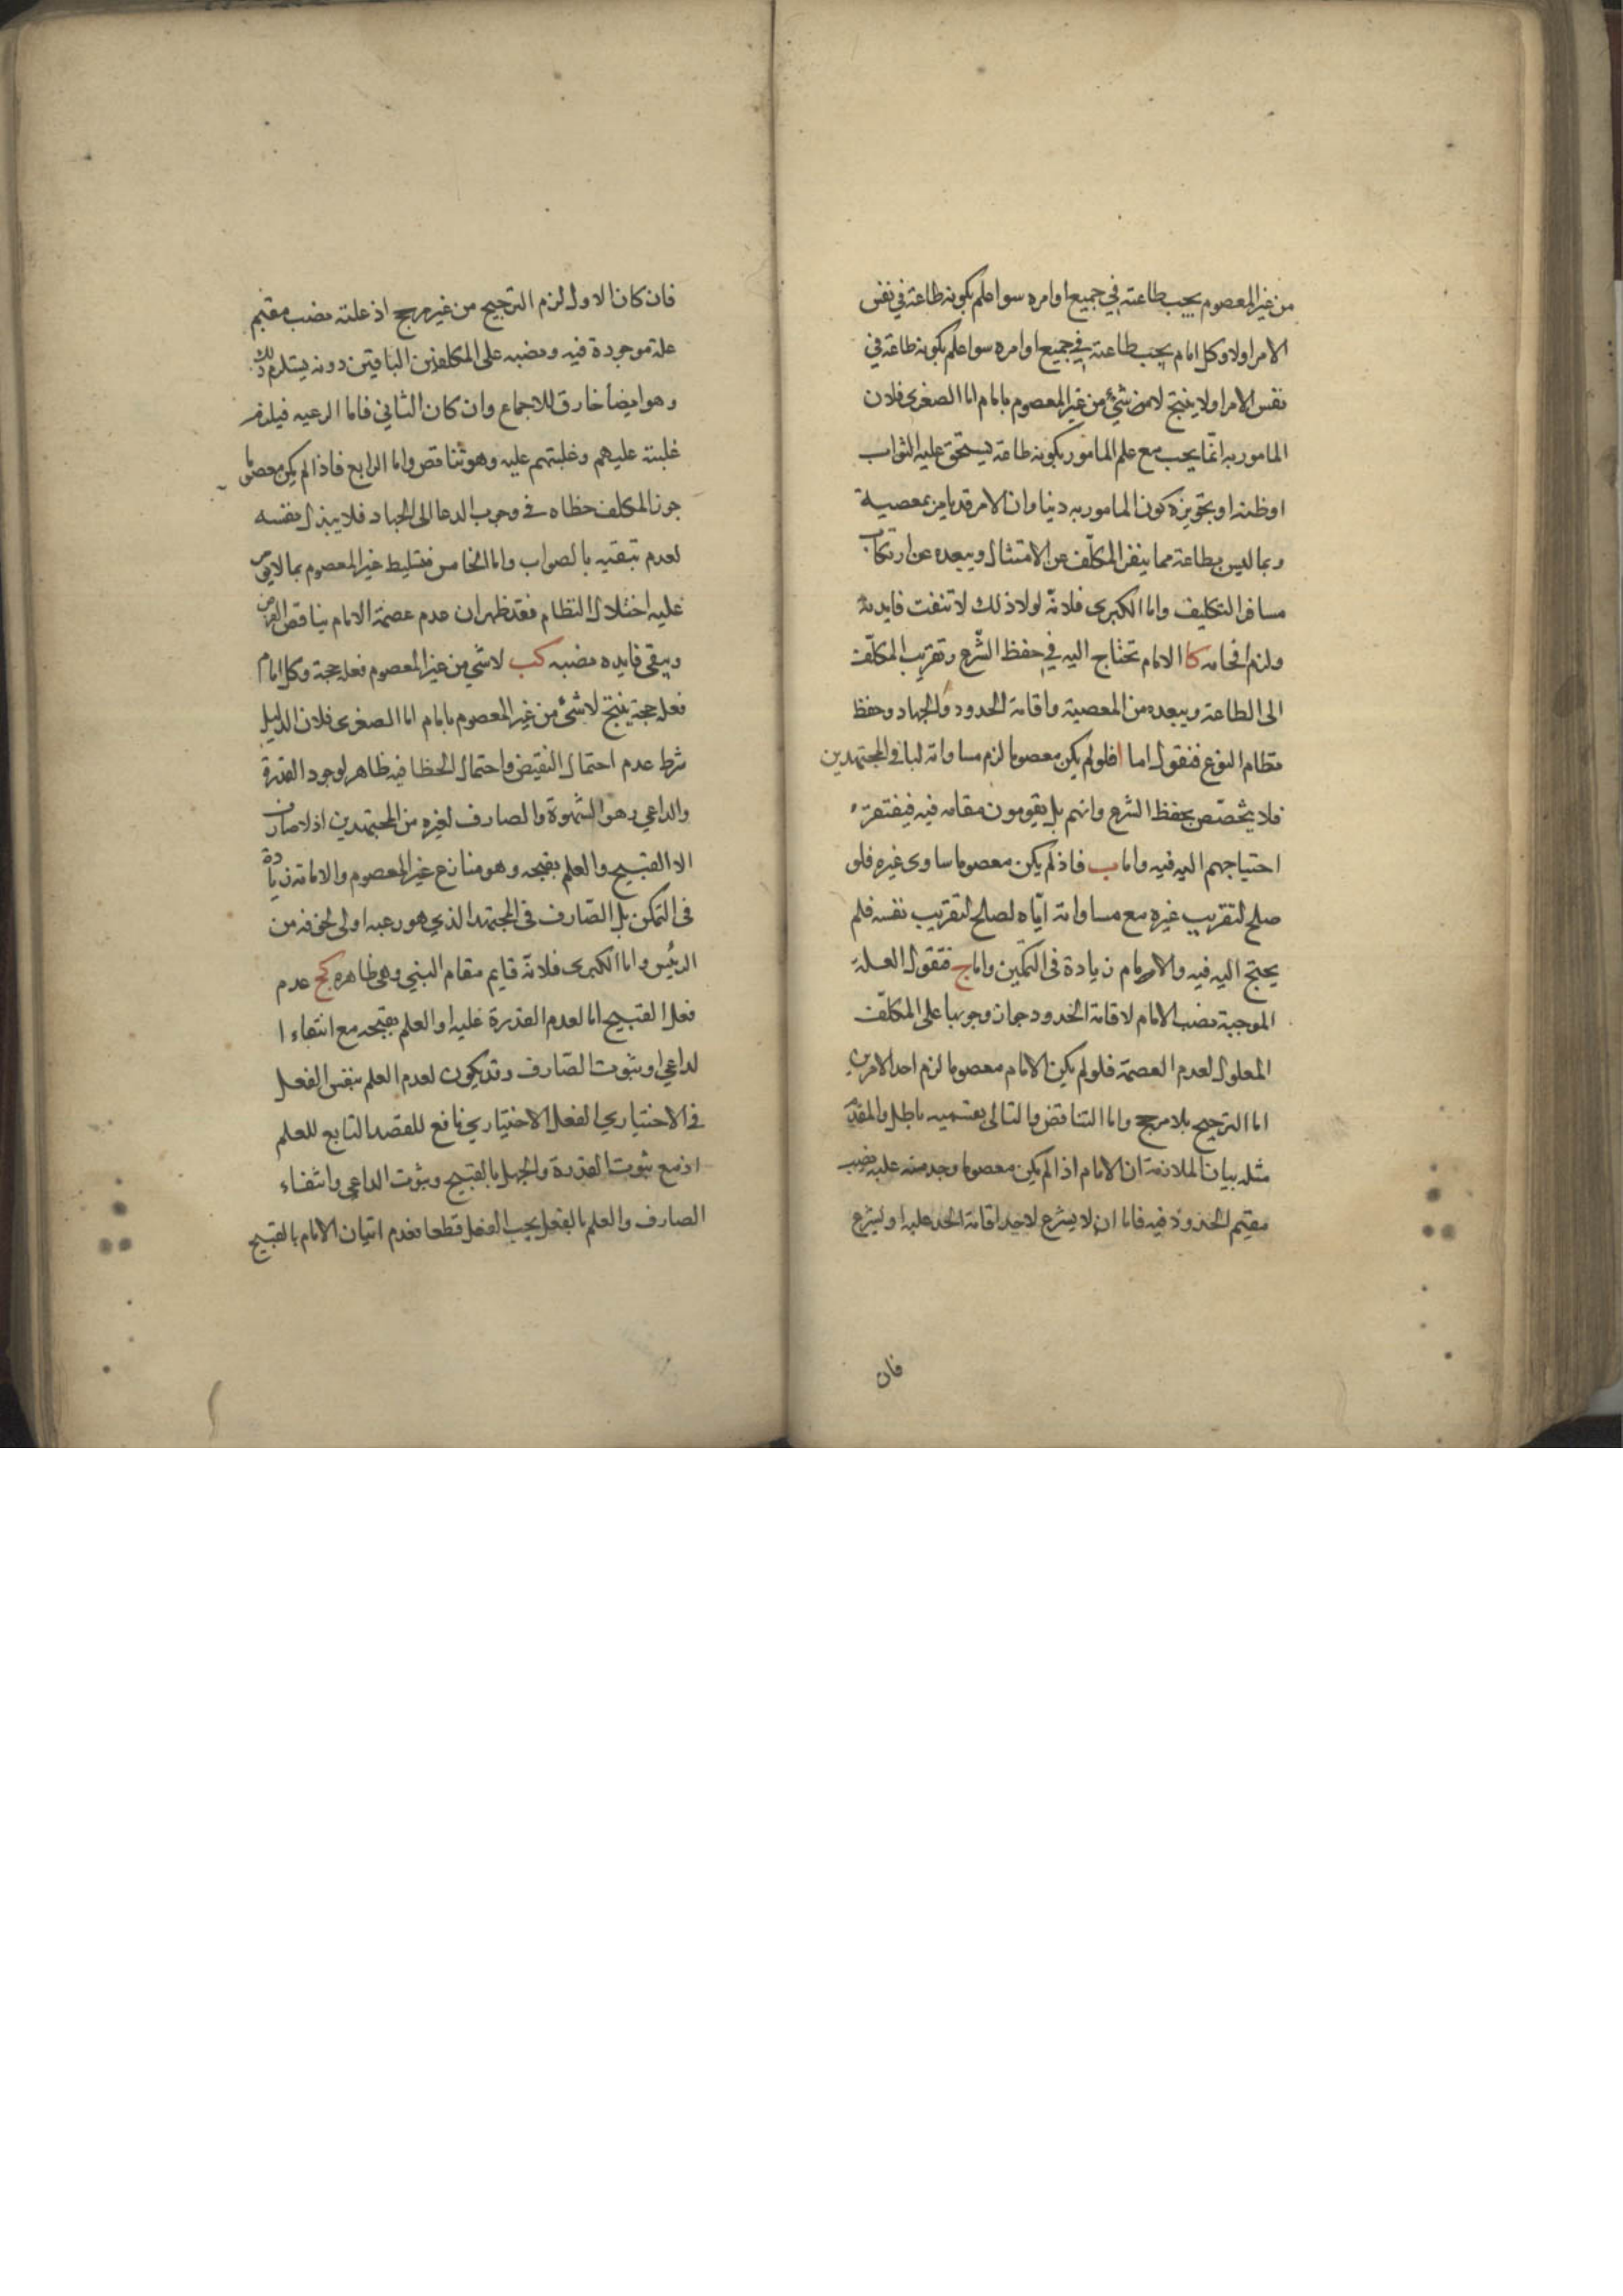 من غير المعصوم يجب طاعته في جميع اوامره سوا علم بكونه طاعة في نفس
الامر اولا وكل امام يجب طاعته في جميع اوامره سوا علم بكونه طاعة في
نفس الامر اولا ينتج لا شئ من غير المعصوم بامام اما الصغرى فلان
المامور به انما يجب مع علم المامور بكونه طاعة يستحق عليه الثواب
اوظنه او تجويزه كون المامور به دنيا وان الامر قد يامر بمعصية
وبما ليس بطاعة مما ينفر المكلف عن الامتثال ويبعده عن ارتكاب
مساق التكليف واما الكبرى فلانه لولا ذلك لانتفت فايدته
ولزم افحامه كا الامام تحتاج اليه في حفظ الشرع وتقريب المكلف
الى الطاعة ويبعده من المعصية واقامة الحدود والجهاد وحفظ
نظام النوع فنقول اما ا فلو لم يكن معصوما لزم مساواته لباقي المجتهدين
فلا يخصص بحفظ الشرع وانهم بل يقومون مقامه فيه فيفتقر
احتياجهم اليه فيه واما ب فاذ لم يكن معصوما ساوى غيره فلو
صلح لتقريب غيره مع مساواته اياه لصلح لتقريب نفسه فلم
يحتج اليه فيه والامام زيادة في التمكين واما ج فنقول العلة
الموجبة نصب الامام لاقامة الحدود جواز وجوبها على المكلف
المعلول لعدم العصمة فلو لم يكن الامام معصوما لزم احد الامرين
اما الترجيح بلا مرجح واما التناقض والتالي بقسميه باطل والمقدم
مثله بيان الملازمة ان الامام اذا لم يكن معصوما وجد منه علية نصب
مقيم الحدود فيه فاما ان لا يشرع لاحد اقامة الحد عليه او يشرع
فان
فان كان الاول لزم الترجيح من غير مرجح اذ علته نصب مقيم
علة موجودة فيه ونصبه على المكلفين الباقين دونه يستلزم ذلك
وهو ايضا خارق للاجماع وان كان الثاني فاما الرعيه فيلزم
غلبته عليهم وغلبتهم عليه وهو تناقص واما الرابع فاذا لم يكن معصوما
جوز المكلف خطاه في وجوب الدعا الى الجهاد فلا يبذل نفسه
لعدم تيقنه بالصواب واما الخامس فتسليط غير المعصوم بما لايؤمن
عليه اختلال النظام فقد ظهر ان عدم عصمة الامام يناقض الغرض
ويبقى فايده نصبه كب لا شي من غير المعصوم فعله حجة وكل امام
فعله حجة ينتج لا شئ من غير المعصوم بامام اما الصغرى فلان الدليل
شرط عدم احتمال النقيض واحتمال الخطا فيه ظاهر لوجود القدرة
والداعي وهو الشهوة والصارف لغيره من المجتهدين اذ لا صارف
الا القبيح والعلم بقبحه وهو منازع غير المعصوم والامامة زيادة
في التمكن بل الصارف في المجتهد الذي هو رعيه اولى لخوفه من
الرئيس واما الكبرى فلانه قايم مقام النبي وهي ظاهره كج عدم
فعل القبيح اما لعدم القدرة عليه او العلم بقبحه مع انتفاء ا
لداعي او ثبوت الصارف وقد يكون لعدم العلم بنفس الفعل
في الاختياري الفعل الاختياري تابع للقصد التابع للعلم
اذ مع ثبوت القدرة والجهل بالقبيح وثبوت الداعي وانتفاء
الصارف والعلم بالفعل يجب الفعل قطعا فعدم اتيان الامام بالقبيح